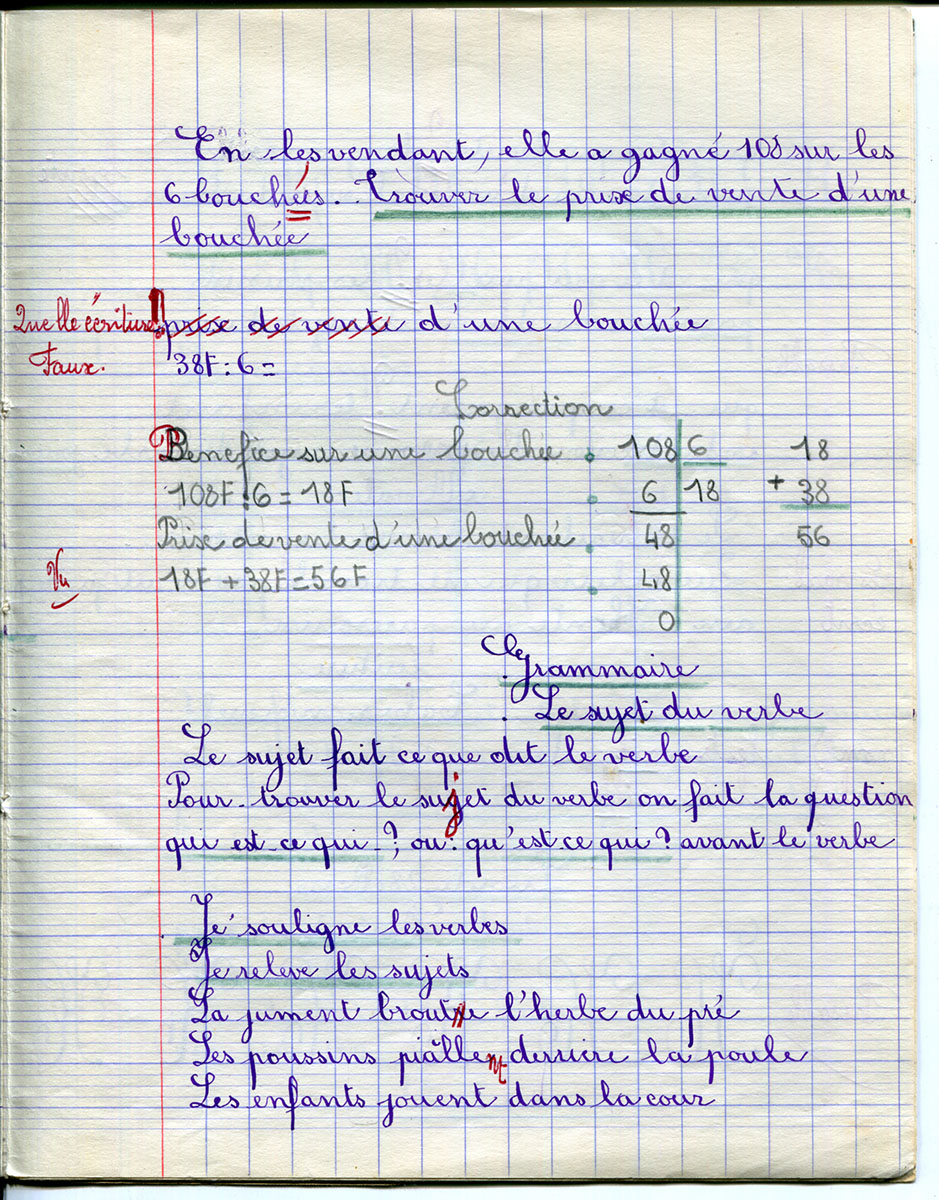 En les vendant, elle a gagné 108 sur les
6 bouchées. Trouver le prixe de vente d'une
bouchée
Quelle écriture! prixe de vente d'une bouchée
Faux. 38F : 6 =
Correction
Benefice sur une bouchée 108 6 18
108F : 6 = 18F 6 18 + 38
Prixe de vente d'une bouchée 48 56
Vu 18F + 38F = 56F 48
0
Grammaire
Le sujet du verbe
Le sujet fait ce que dit le verbe
Pour trouver le sujet du verbe on fait la question
qui est-ce qui ? ou : qu'est ce qui ? avant le verbe
Je souligne les verbes
Je releve les sujets
La jument broute l'herbe du pré
Les poussins piaillent derriere la poule
Les enfants jouent dans la cour